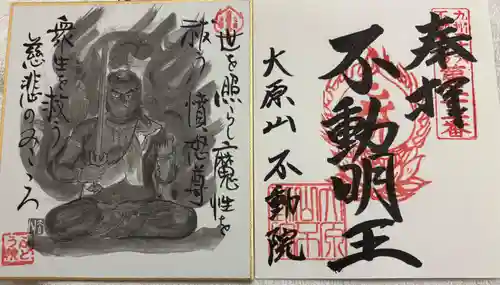 世を照らし魔性を
救う憤怒尊
衆生を救う
慈悲のみこころ
奉拝
不動明王
大原山不動院